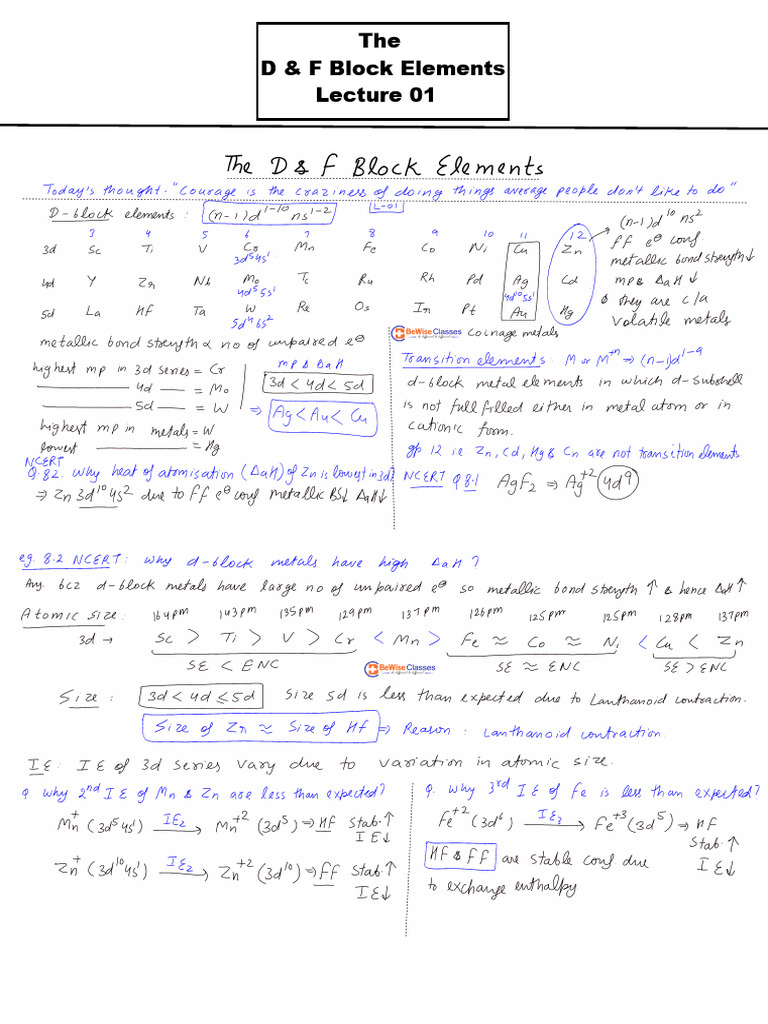 The
D & F Block Elements
Lecture 01
The D & f Block Elements
Today's thought - "Courage is the craziness of doing things average people don't like to do"
L-01
D-block elements : (n-1)d¹⁻¹⁰ ns¹⁻²
3 4 5 6 7 8 9 10 11 12
3d Sc Ti V Cr Mn Fe Co Ni Cu Zn
3d⁵4s¹
4d Y Zr Nb Mo Tc Ru Rh Pd Ag Cd
4d⁵5s¹ 4d¹⁰5s¹
5d La Hf Ta W Re Os In Pt Au Hg
5d⁴6s²
(n-1)d¹⁰ns²
ff e⊖ conf.
metallic bond strength↓
mp & ΔaH↓
& they are c/a
volatile metals
BeWise Classes
Coinage metals
metallic bond strength ∝ no of unpaired e⊖
highest mp in 3d series = Cr
4d = Mo
5d = W
highest mp in metals = W
lowest = Hg
mp & ΔaH
3d < 4d < 5d
⇒ Ag < Au < Cu
Transition elements: M or Mⁿ⁺ ⇒ (n-1)d¹⁻⁹
d-block metal elements in which d-subshell
is not full filled either in metal atom or in
cationic form.
gp 12 i.e. Zn, Cd, Hg & Cn are not transition elements
NCERT
Q.8.2. Why heat of atomisation (ΔaH) of Zn is lowest in 3d?
⇒ Zn 3d¹⁰4s² due to ff e⊖ conf metallic BS↓ ΔaH↓
NCERT Q 8.1 AgF₂ ⇒ Ag⁺² 4d⁹
eg. 8.2 NCERT: why d-block metals have high ΔaH ?
Any. bcz d-block metals have large no of unpaired e⊖ so metallic bond strength ↑ & hence ΔaH ↑
Atomic size: 164pm 143pm 135pm 129pm 137pm 126pm 125pm 125pm 128pm 137pm
3d → Sc > Ti > V > Cr < Mn > Fe ≈ Co ≈ Ni < Cu < Zn
SE < ENC SE ≈ ENC SE > ENC
BeWise Classes
Size : 3d < 4d ≤ 5d Size 5d is less than expected due to Lanthanoid contraction.
Size of Zr ≈ Size of Hf ⇒ Reason : Lanthanoid contraction.
IE: IE of 3d series vary due to variation in atomic size.
Q. why 2nd IE of Mn & Zn are less than expected?
Mn⁺ (3d⁵4s¹) IE₂ → Mn⁺² (3d⁵) ⇒ HF Stab.↑
IE↓
Zn⁺ (3d¹⁰4s¹) IE₂ → Zn⁺² (3d¹⁰) ⇒ ff Stab.↑
IE↓
Q. why 3rd IE of Fe is less than expected?
Fe⁺² (3d⁶) IE₃ → Fe⁺³ (3d⁵) ⇒ HF
Stab.↑
IE↓
HF & FF are stable conf due
to exchange enthalpy